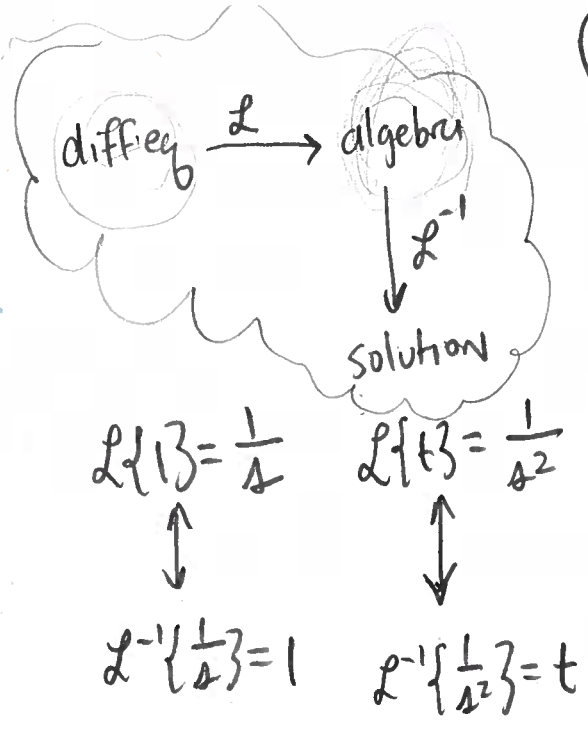 diffieq ℒ → algebra
ℒ⁻¹
solution
ℒ{1} = 1/s ℒ{t} = 1/s²
ℒ⁻¹{1/s} = 1 ℒ⁻¹{1/s²} = t